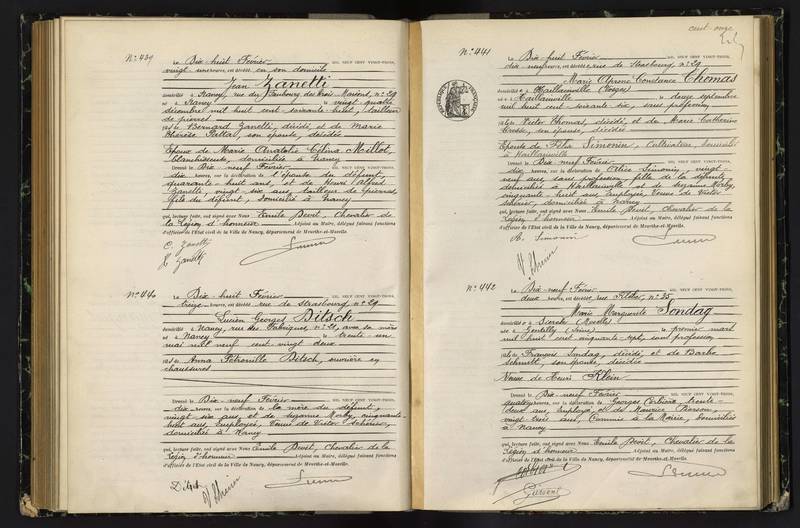 N° 439
Le Dix-huit Février MIL NEUF CENT VINGT-TROIS,
vingt-une heures, est décédé en son domicile
Jean Zanetti
domicilié à Nancy, rue du Faubourg des Trois Maisons, n° 29
né à Nancy le vingt-quatre
décembre mil huit cent soixante huit, tailleur
de pierres
fils de Bernard Zanetti, décédé, et de Marie
Thérèse son épouse, décédée
Epoux de Marie Anatolie Célina Millot,
blanchisseuse, domiciliée à Nancy
Dressé le Dix-neuf Février MIL NEUF CENT VINGT-TROIS,
dix heures, sur la déclaration de l'épouse du défunt,
quarante-huit ans, et de Henri Alfred
Zanetti, vingt six ans, tailleur de pierres,
fils du défunt, domicilié à Nancy
qui, lecture faite, ont signé avec Nous Emile Devit, Chevalier de
la Légion d'honneur Adjoint au Maire, délégué faisant fonctions
d'officier de l'Etat civil de la Ville de Nancy, département de Meurthe-et-Moselle.
C. Zanetti
H. Zanetti
N° 440
Le Dix huit Février MIL NEUF CENT VINGT-TROIS,
treize heures, est décédé rue de Strasbourg n° 29
Lucien Georges Ditsch
domicilié à Nancy, rue des Fabriques, n° 21, avec sa mère
né à Nancy le trente un
mai mil neuf cent vingt deux
fils de Anna Pétronille Ditsch, ouvrière en
chaussures
Dressé le Dix-neuf Février MIL NEUF CENT VINGT-TROIS,
dix heures, sur la déclaration de la mère du défunt,
vingt six ans, et de Suzanne Morby, cinquante
huit ans, employée, Veuve de Victor Scherier,
domiciliées à Nancy
qui, lecture faite, ont signé avec Nous Emile Devit, Chevalier de la
Légion d'honneur Adjoint au Maire, délégué faisant fonctions
d'officier de l'Etat civil de la Ville de Nancy, département de Meurthe-et-Moselle.
Ditsch
cent-onze
N° 441
Le Dix-huit Février MIL NEUF CENT VINGT-TROIS,
dix-neuf heures, est décédée, rue de Strasbourg, n° 29
Marie Constance Thomas
domiciliée à Haillainville (Vosges)
née à Haillainville le douze septembre
mil huit cent soixante six, sans profession
fille de Victor Thomas, décédé, et de Marie Catherine
son épouse, décédée
Epouse de Félix Simonin, Cultivateur, domicilié
à Haillainville
Dressé le Dix-neuf Février MIL NEUF CENT VINGT-TROIS,
dix heures, sur la déclaration de Simonin, vingt
neuf ans, sans profession, fille de la défunte,
domiciliée à Haillainville et de Suzanne Morby,
cinquante huit ans, employée, Veuve de Victor
Scherier, domiciliée à Nancy
qui, lecture faite, ont signé avec Nous Emile Devit, Chevalier de la
Légion d'honneur Adjoint au Maire, délégué faisant fonctions
d'officier de l'Etat civil de la Ville de Nancy, département de Meurthe-et-Moselle.
Simonin
N° 442
Le Dix-neuf Février MIL NEUF CENT VINGT-TROIS,
deux heures, est décédée, rue Kléber, n° 35
Marie Marguerite Sondag
domiciliée à Sierck (Moselle)
née à Gentilly (Seine) le premier mars
mil huit cent cinquante sept, sans profession
fille de François Sondag, décédé, et de Barbe
Schmitt, son épouse, décédée
Veuve de Henri Klein
Dressé le Dix-neuf Février MIL NEUF CENT VINGT-TROIS,
quatorze heures, sur la déclaration de Georges Corbière, trente-
deux ans, employé, et de Maurice
vingt trois ans, Commis à la Mairie, domiciliés
à Nancy
qui, lecture faite, ont signé avec Nous Emile Devit, Chevalier de la
Légion d'honneur Adjoint au Maire, délégué faisant fonctions
d'officier de l'Etat civil de la Ville de Nancy, département de Meurthe-et-Moselle.